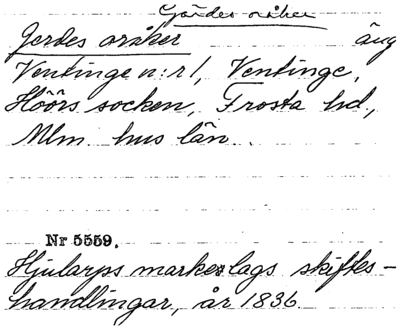 Gärdes oråker
Jerdes oråker äng
Ventinge n:r 1, Ventinge,
Höörs socken, Frosta hd,
Mlm. hus län.
Nr 5559.
Hjularps markeslags skiftes-
handlingar, år 1836